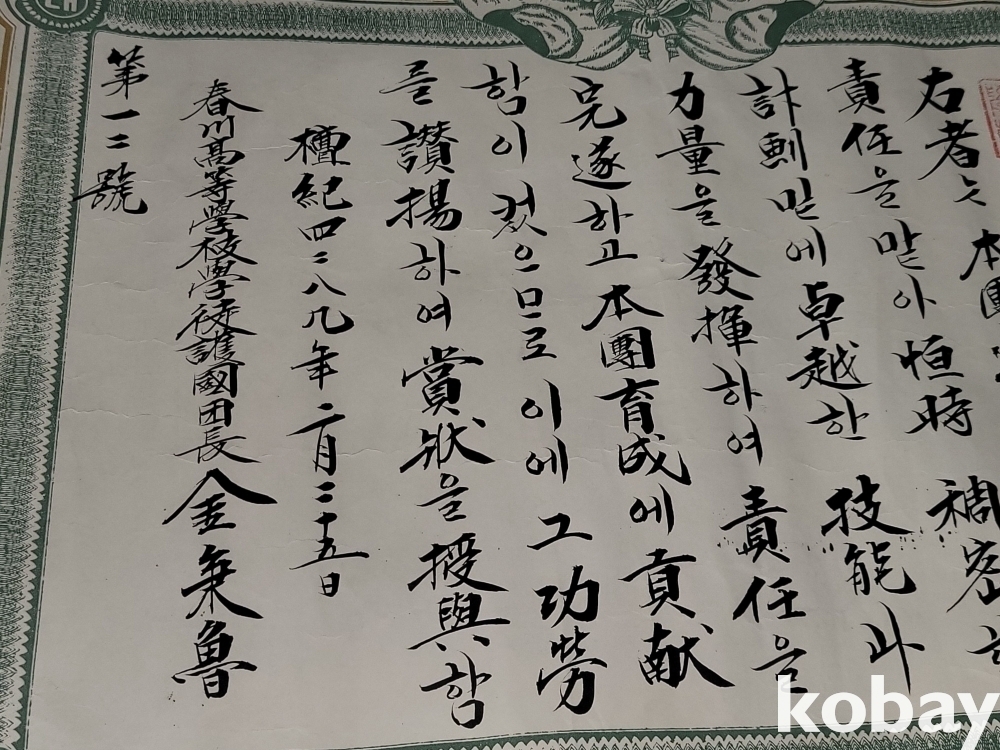 右者는 本團
責任을 맡아 恒時 稠密하
計劃 밑에 卓越한 技能과
力量을 發揮하여 責任을
完遂하고 本團育成에 貢献
함이 컷으므로 이에 그 功勞
를 讃揚하여 賞狀을 授與함
檀紀四二八九年 二月二十五日
春川高等學校學徒護國团長 金秉魯
第一二號
kobay